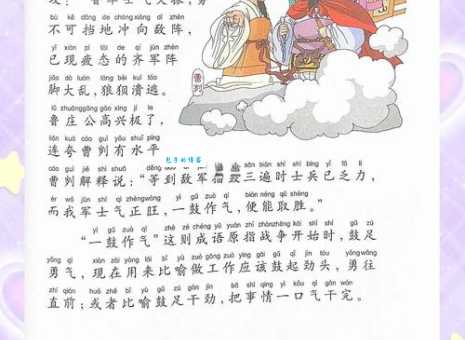 bù kě dǎng de chōng xiàng dí zhèn
不可挡地冲向敌阵，
yǐ xiàn pí tài de qí jūn zhèn
已现疲态的齐军阵
jiǎo dà luàn láng bèi kuì táo
脚大乱，狼狈溃逃。
lǔ zhuāng gōng gāo xìng jí le
鲁庄公高兴极了，
lián kuā cáo guì yǒu shuǐ píng
连夸曹刿有水平
曹刿
cáo guì jiě shì shuō děng sān biàn shí shì bīng yǐ fá lì
曹刿解释说：“等到敌军 三遍时士兵已乏力，
ér wǒ jūn shì qì zhèng wàng yì gǔ zuò qì biàn néng qǔ shèng
而我军士气正旺，一鼓作气，便能取胜。”
yì gǔ zuò qì zhè zé chéng yǔ yuán zhǐ zhàn zhēng kāi shǐ shí gǔ zú
“一鼓作气”这则成语原指战争开始时，鼓足
yǒng qì xiàn zài yòng lái bǐ yù zuò gōng zuò yīng gāi gǔ qǐ jìn tóu yǒng wǎng
勇气，现在用来比喻做工作应该鼓起劲头，勇往
zhí qián huò zhě bǐ yù gǔ zú gàn jìn bǎ shì qing yì kǒu qì gàn wán
直前；或者比喻鼓足干劲，把事情一口气干完。